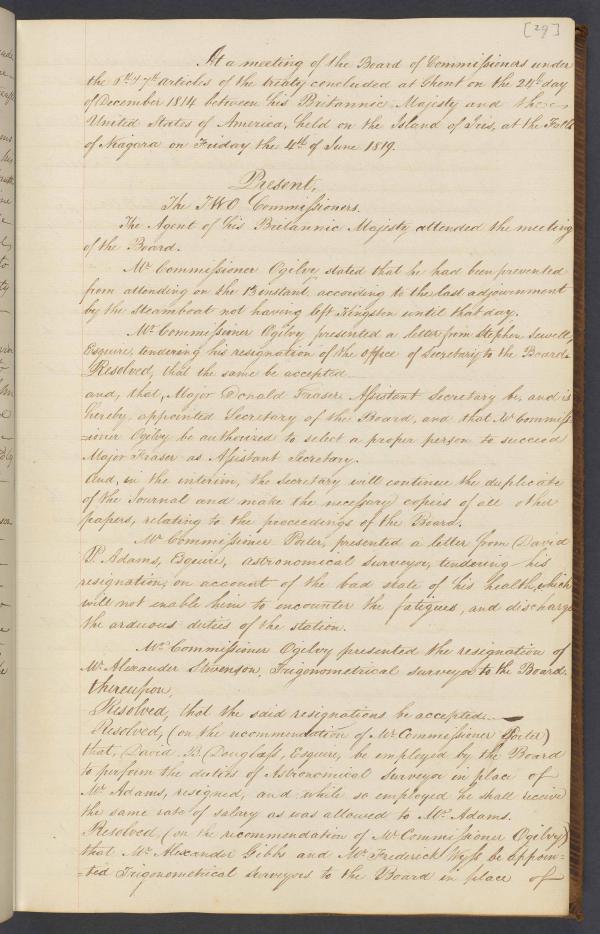 [29]
At a meeting of the Board of Commissioners under
the 6th & 7th articles of the treaty concluded at Ghent on the 24th day
of December 1814 between his Britannic Majesty and the
United States of America, held on the Island of Iris, at the Falls
of Niagara on Friday the 4th of June 1819.
Present,
The TWO Commissioners.
The Agent of his Britannic Majesty attended the meeting
of the Board.
Mr Commissioner Ogilvy stated that he had been prevented
from attending on the 13 instant, according to the last adjournment
by the steamboat not having left Kingston until that day.
Mr Commissioner Ogilvy presented a letter from Stephen Sewell,
Esquire, tendering his resignation of the office of Secretary to the Board
Resolved, that the same be accepted
and, that, Major Donald Fraser, Assistant Secretary be, and is
hereby, appointed Secretary of the Board, and that Mr Commiss
=ioner Ogilvy be authorized to select a proper person to succeed
Major Fraser as Assistant Secretary.
And, in the interim, the Secretary will continue the duplicate
of the Journal and make the necessary copies of all other
papers, relating to the proceedings of the Board.
Mr Commissioner Porter, presented a letter from David
P. Adams, Esquire, astronomical surveyor, tendering his
resignation, on account of the bad state of his health, which
will not enable him to encounter the fatigues, and discharge
the arduous duties of the station.
Mr Commissioner Ogilvy presented the resignation of
Mr Alexander Stevenson, Trigonometrical surveyor to the Board.
thereupon,
Resolved, that the said resignations be accepted.
Resolved, (on the recommendation of Mr Commissioner Porter)
that, David B. Douglass, Esquire, be employed by the Board
to perform the duties of Astronomical surveyor in place of
Mr Adams, resigned, and while so employed he shall receive
the same rate of salary as was allowed to Mr Adams.
Resolved, (on the recommendation of Mr Commissioner Ogilvy)
that Mr Alexander Gibbs and Mr Frederick Wyss be appoin=
=ted Trigonometrical Surveyors to the Board in place of